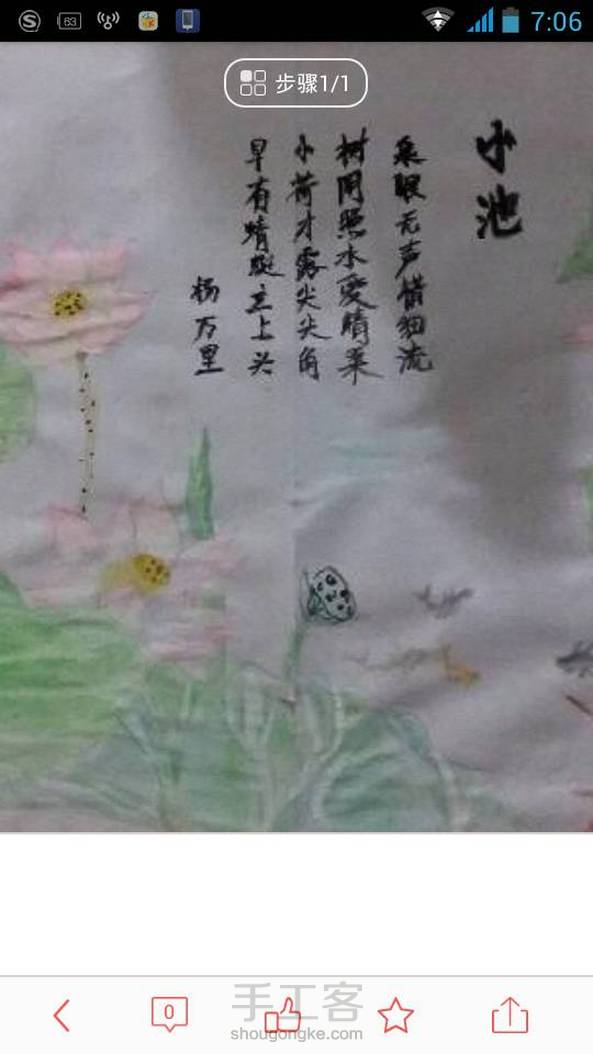 63
7:06
步骤1/1
小池
泉眼无声惜细流
树阴照水爱晴柔
小荷才露尖尖角
早有蜻蜓立上头
杨万里
0
手工客
shougongke.com